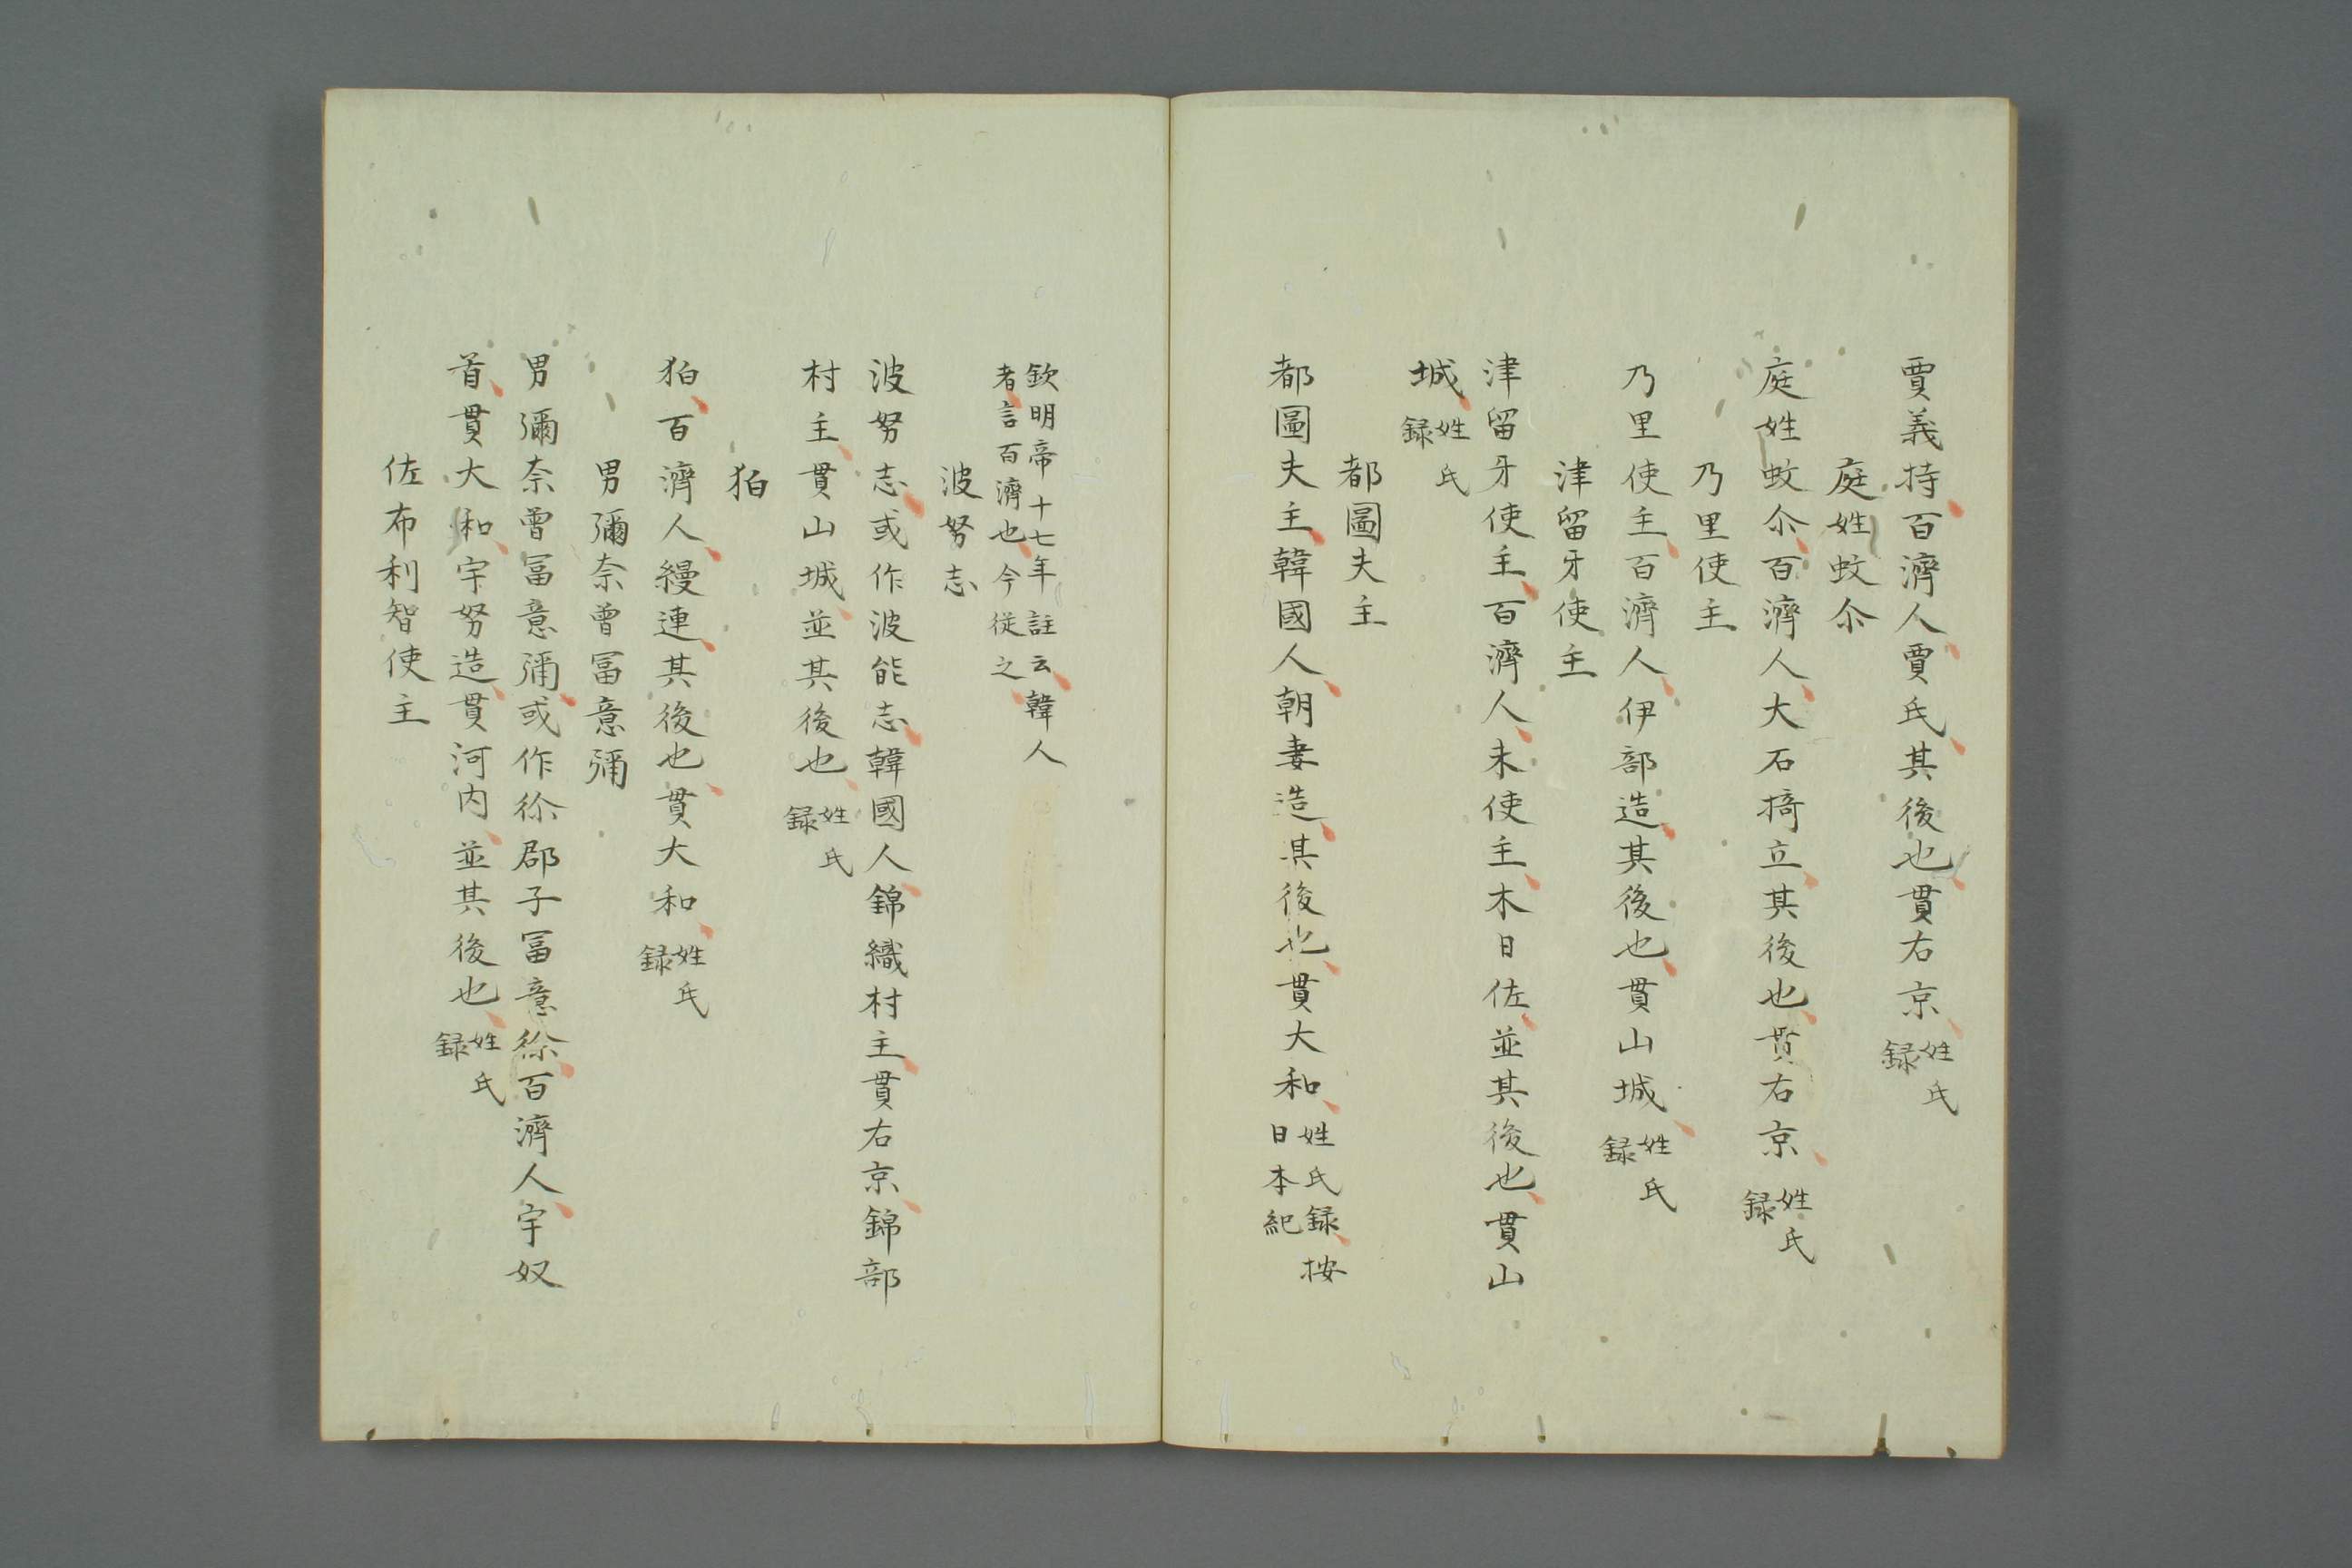 賈義持百濟人賈氏其後也貫右京姓氏録
庭姓蚊尒
庭姓蚊尒百濟人大石揥立其後也貫右京姓氏録
乃里使主
乃里使主百濟人伊部造其後也貫山城姓氏録
津留牙使主
津留牙使主百濟人末使主木日佐並其後也貫山
城姓氏録
都圖夫主
都圖夫主韓國人朝妻造其後也貫大和姓氏録按日本紀
欽明帝十七年註云韓人
者言百濟也今従之
波努志
波努志或作波能志韓國人錦織村主貫右京錦部
村主貫山城並其後也姓氏録
狛
狛百濟人縵連其後也貫大和姓氏録
男彌奈曾冨意彌
男彌奈曾冨意彌或作㣲郡子冨意㣲百濟人宇奴
首貫大和宇努造貫河内並其後也姓氏録
佐布利智使主